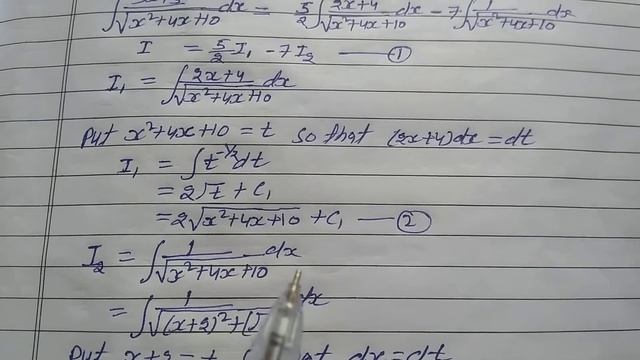 ∫ /√x²+4x+10 dx = 5/2 ∫ 2x+4/√x²+4x+10 dx - 7 ∫ 1/√x²+4x+10 dx
I = 5/2 I₁ - 7 I₂ — ①
I₁ = ∫ 2x+4/√x²+4x+10 dx
Put x²+4x+10 = t so that (2x+4)dx = dt
I₁ = ∫ t^-1/2 dt
= 2√t + C₁
= 2√x²+4x+10 + C₁ — ②
I₂ = ∫ 1/√x²+4x+10 dx
= ∫ 1/√(x+2)²+(√ dx
Put x+2 = t dx = dt